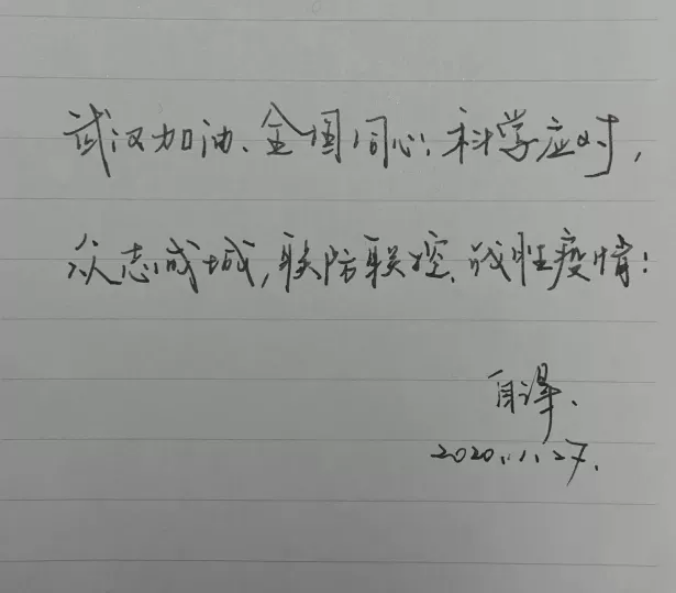 武汉加油、全国同心,科学应对,
众志成城,联防联控、战胜疫情!
自译、
2020.1.27.